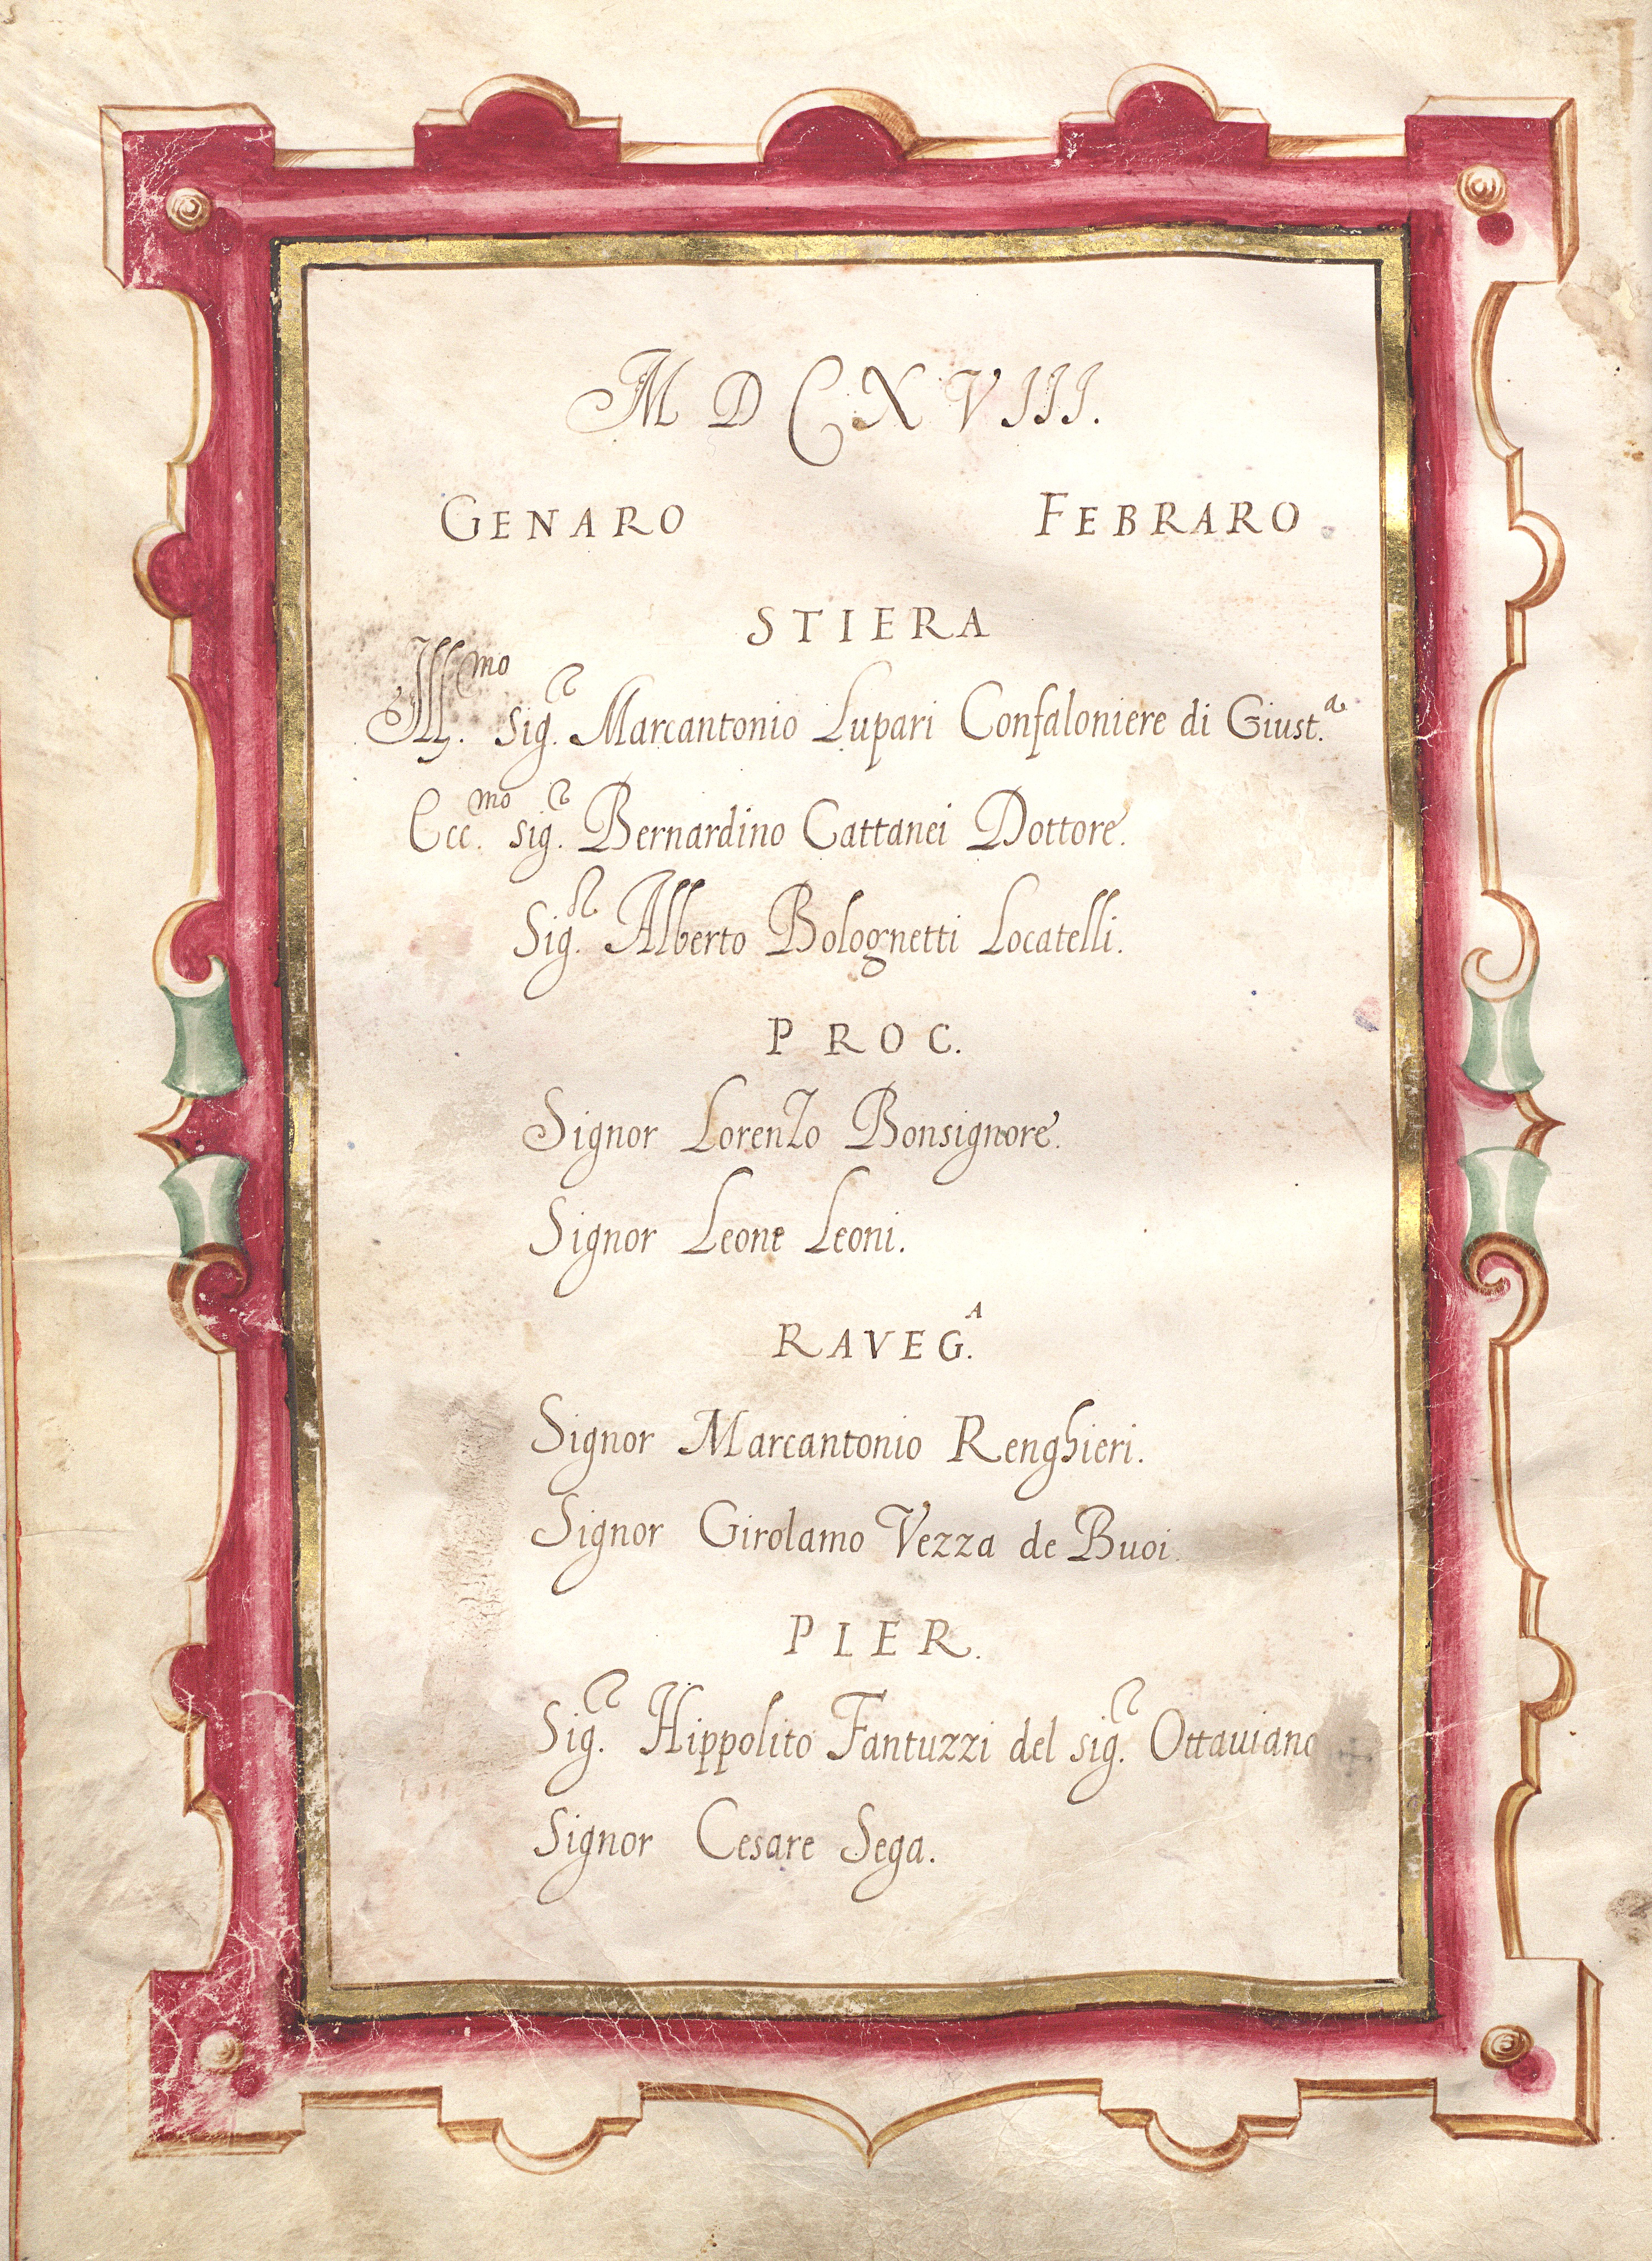 MDCXVIII.
GENARO FEBRARO
STIERA
Ill.mo Sig.r Marcantonio Lupari Confaloniere di Giust.a
Ecc.mo sig.r Bernardino Cattanei Dottore.
Sig.r Alberto Bolognetti Locatelli.
PROC.
Signor Lorenzo Bonsignore.
Signor Leone Leoni.
RAVEG.A
Signor Marcantonio Renghieri.
Signor Girolamo Vezza de Buoi.
PIER.
Sig.r Hippolito Fantuzzi del sig.r Ottauiano
Signor Cesare Sega.